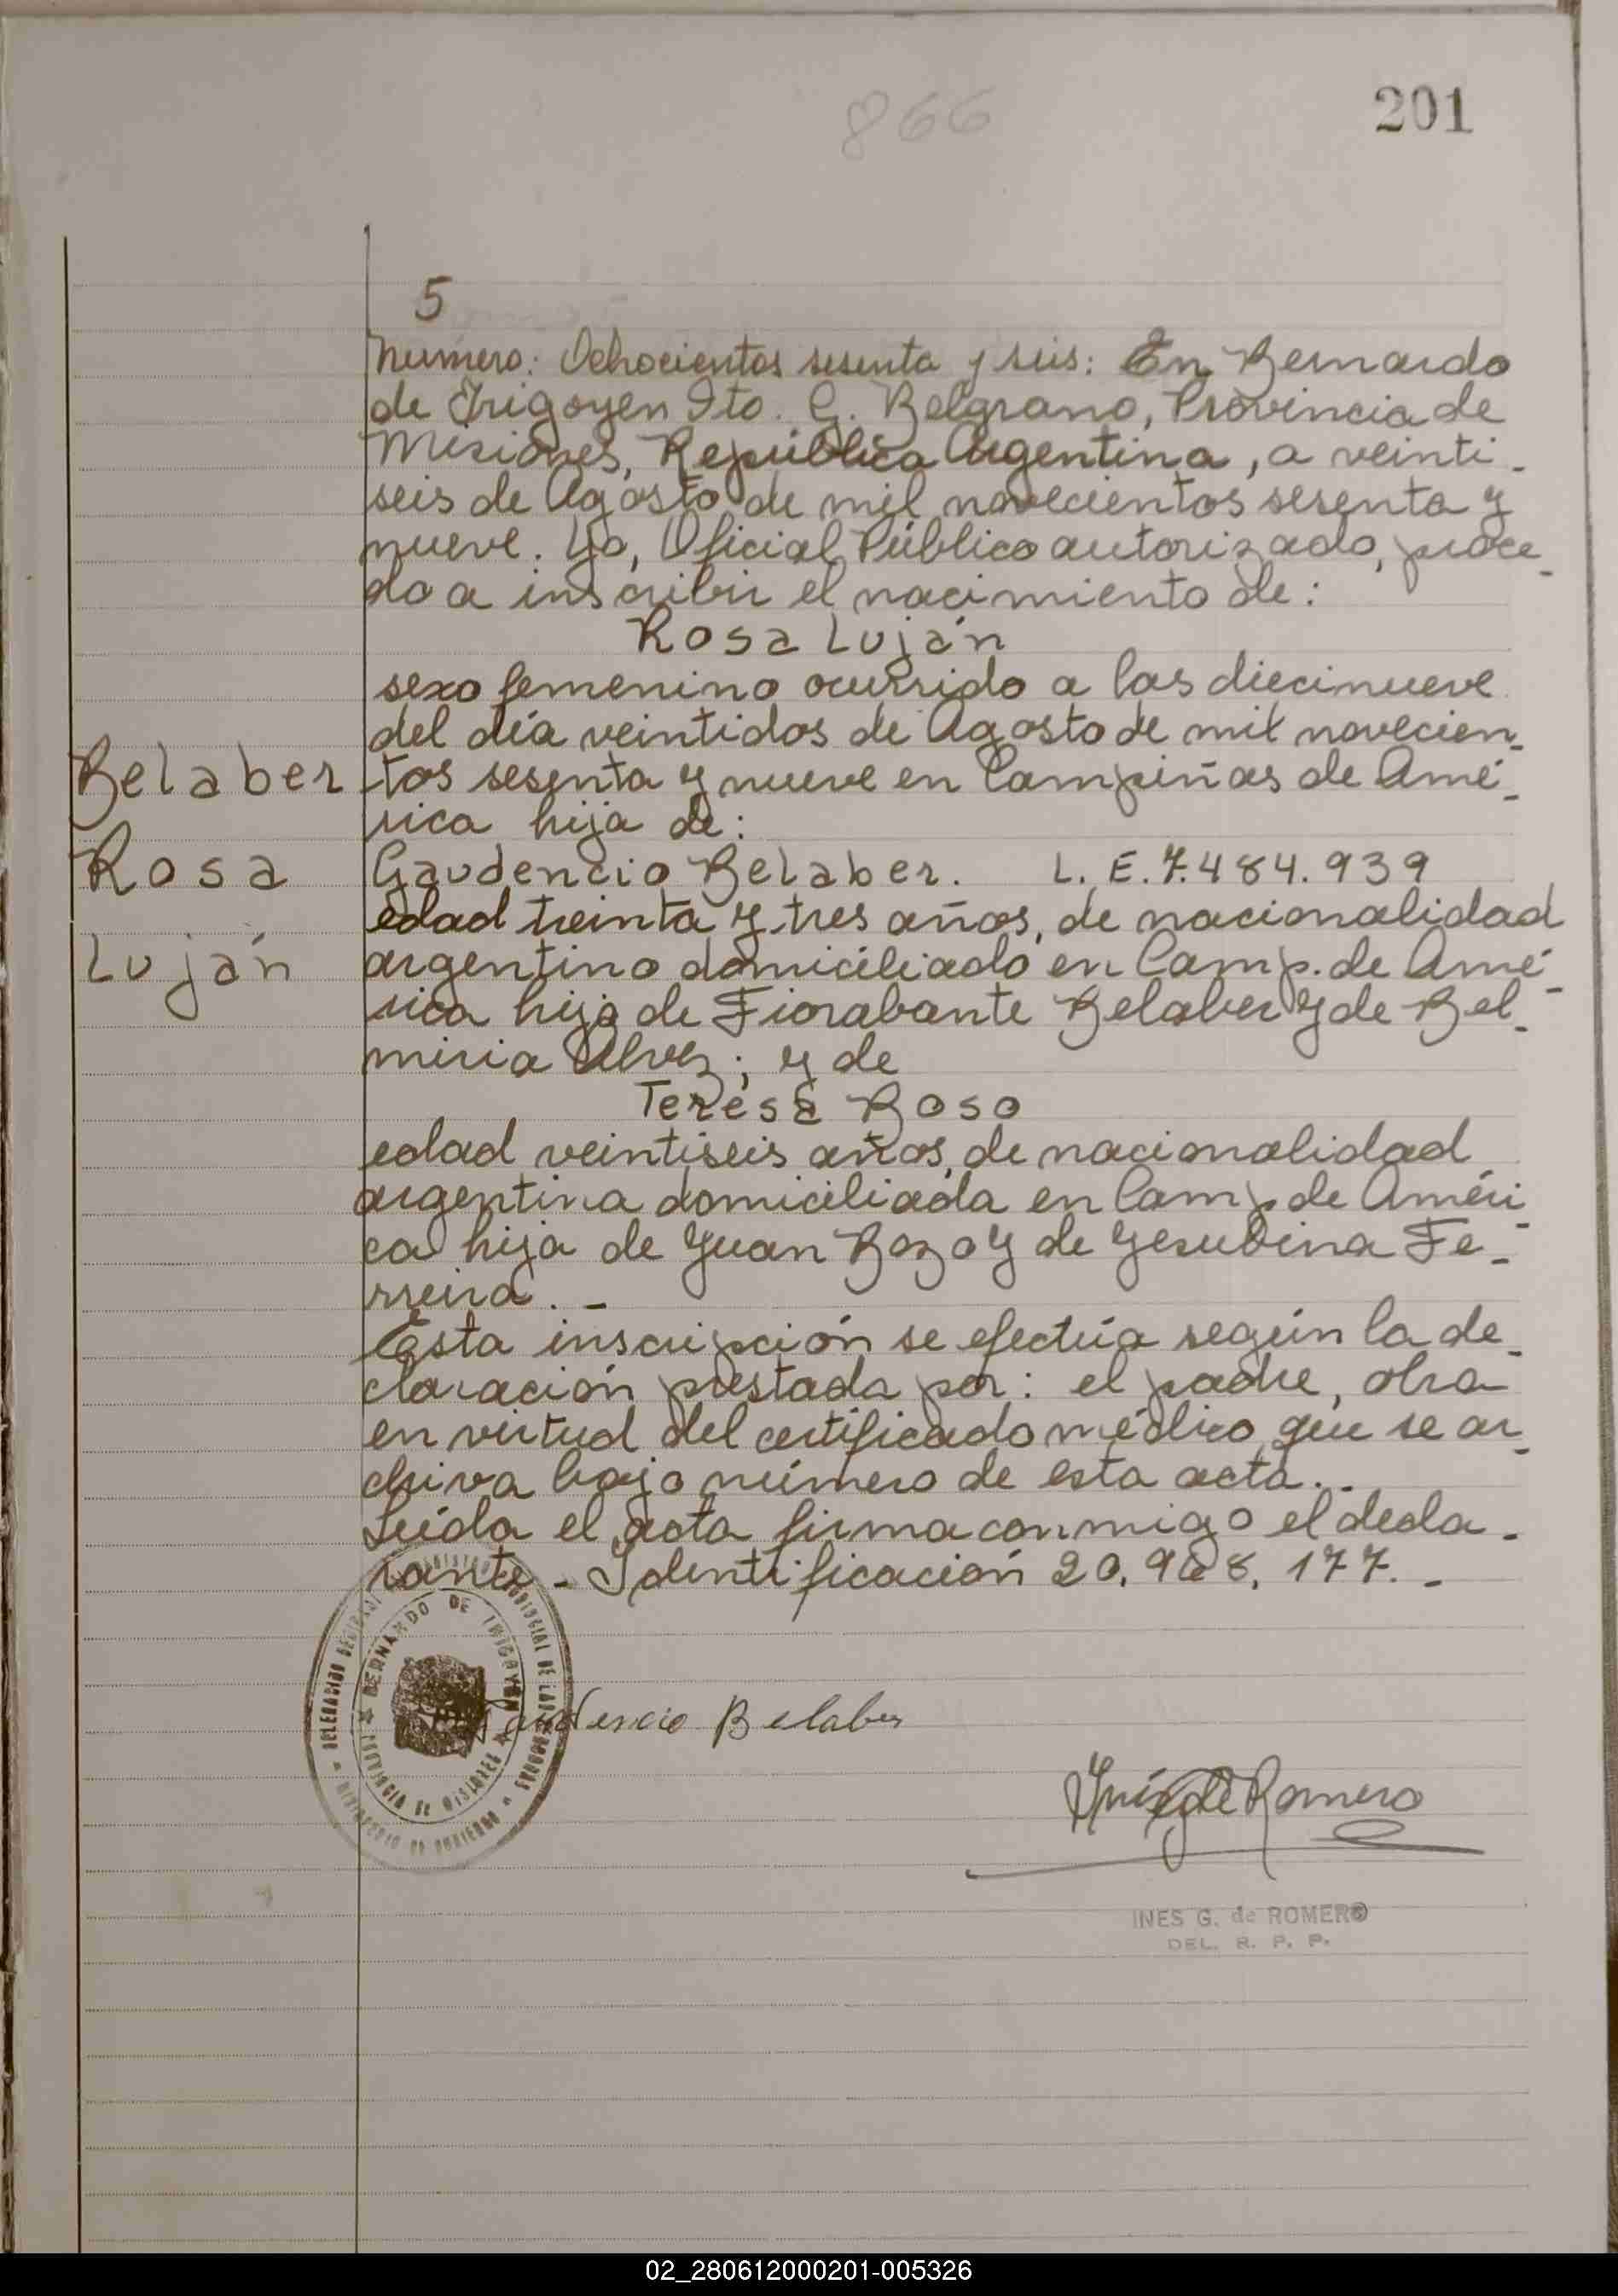 866
201
5
Número: Ochocientos sesenta y seis: En Bernardo
de Irigoyen Dto. G. Belgrano, Provincia de
Misiones, República Argentina, a veinti-
seis de Agosto de mil novecientos sesenta y
nueve. Yo, Oficial Público autorizado, proce-
do a inscribir el nacimiento de:
Rosa Luján
sexo femenino ocurrido a las diecinueve
del día veintidos de Agosto de mil novecien-
Belaber
tos sesenta y nueve en Campiñas de Amé-
rica hija de:
Rosa
Gaudencio Belaber. L. E. 7.484.939
edad treinta y tres años, de nacionalidad
Luján
argentino domiciliado en Camp. de Amé-
rica hijo de Fiorabante Belaber y de Bel-
miria Alvez; y de
Teresa Boso
edad veintiseis años, de nacionalidad
argentina domiciliada en Camp de Améri-
ca hija de Yuan Bozo y de Yesubina Fe-
rreira. -
Esta inscripción se efectúa según la de-
claración prestada por: el padre, obra
en virtud del certificado médico que se ar-
chiva bajo número de esta acta. -
Leída el acta firma conmigo el decla-
rante - Identificación 20. 177. -
BERNARDO DE IRIGOYEN
PROVINCIA DE MISIONES
MINISTERIO DE GOBIERNO
Gaudencio Belaber
Inés G de Romero
INES G. de ROMERO
DEL. R. P. P.
02_280612000201-005326